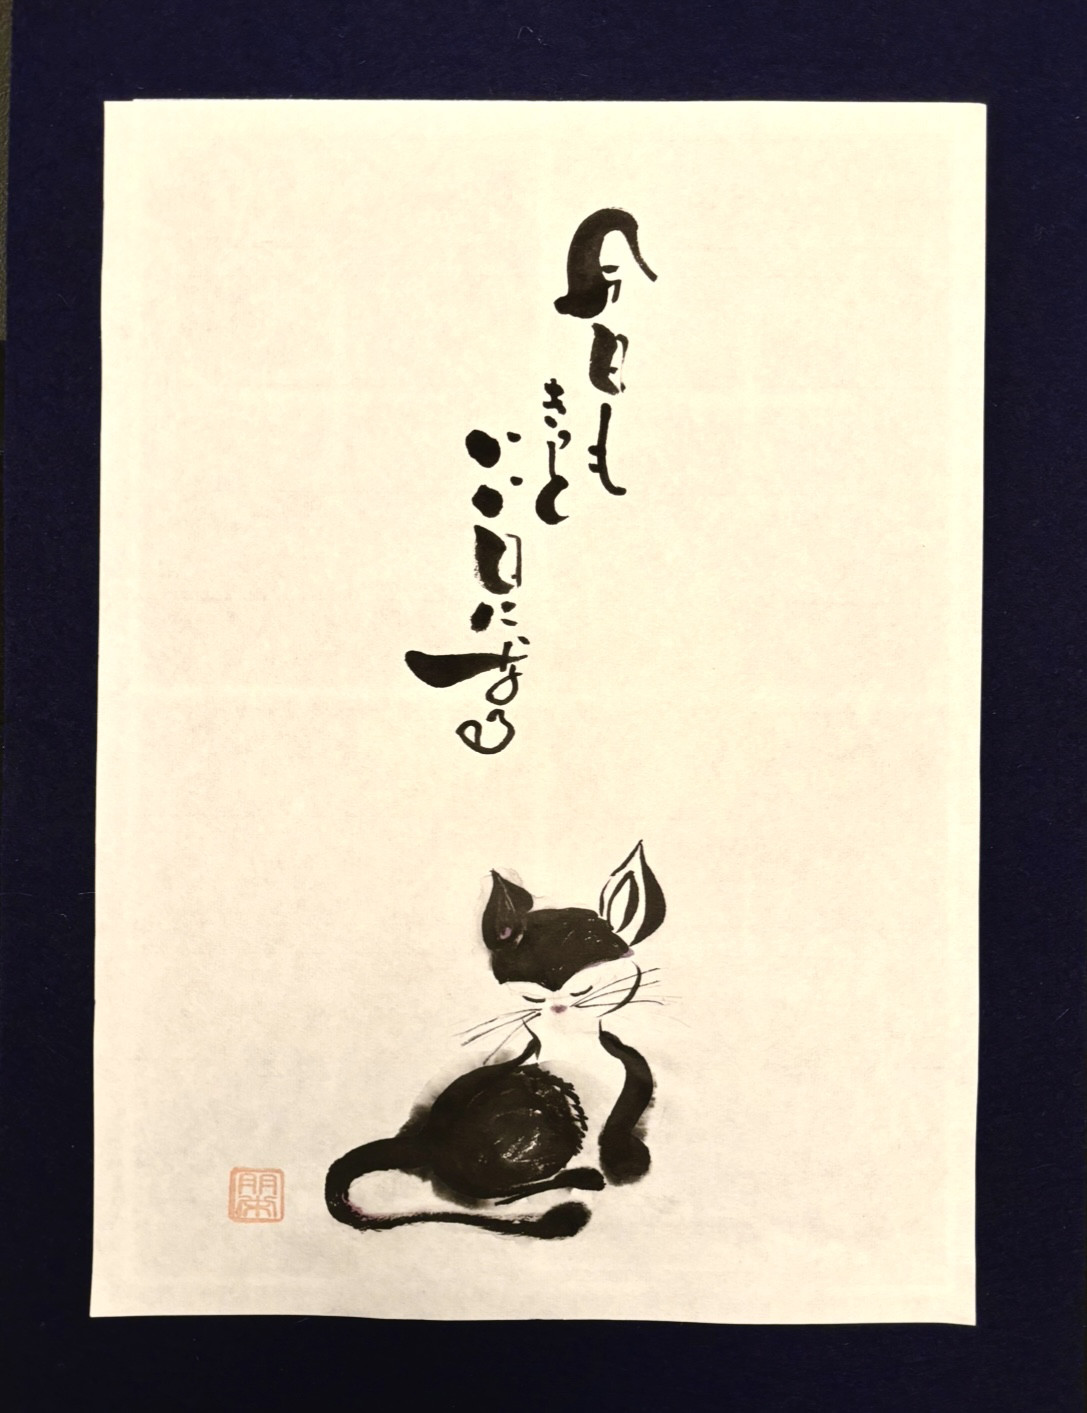 今日も
きっと
いい日になる